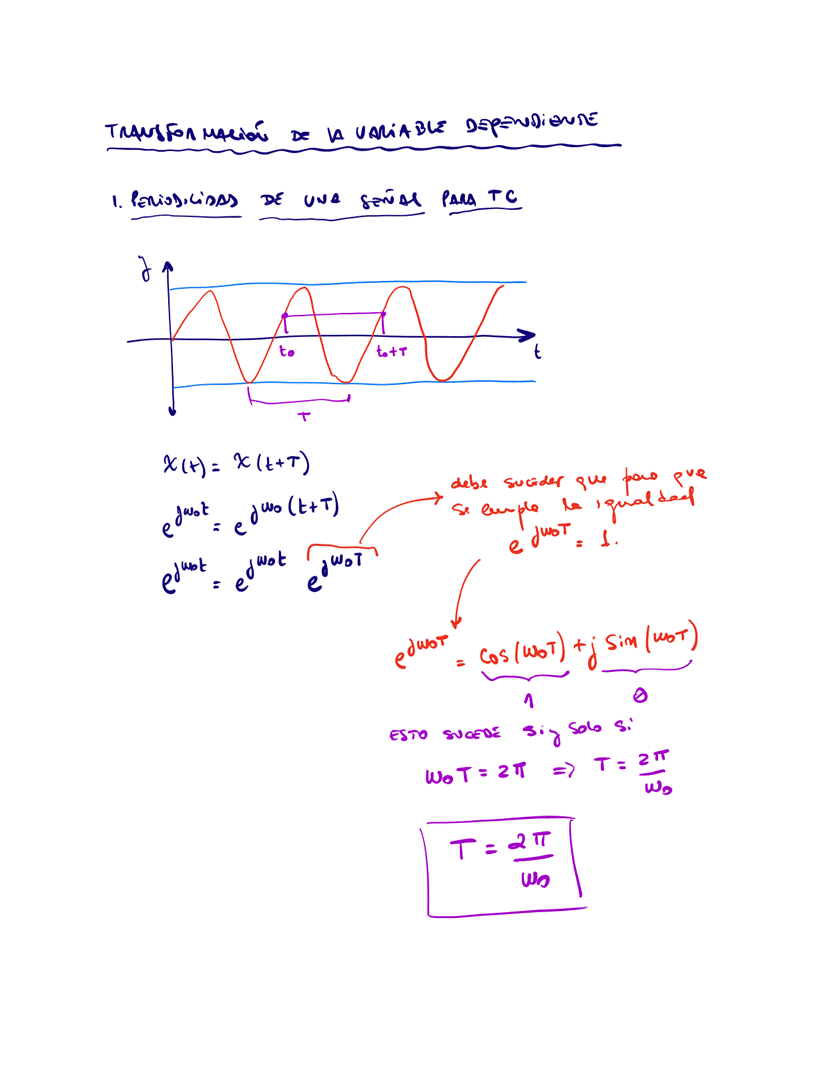 TRANSFORMACIÓN DE LA VARIABLE DEPENDIENTE
1. PERIODICIDAD DE UNA SEÑAL PARA TC
y
t
t₀
t₀+T
T
x(t) = x(t+T)
e^{jω₀t} = e^{jω₀(t+T)}
e^{jω₀t} = e^{jω₀t} e^{jω₀T}
debe suceder que para que
se cumpla la igualdad
e^{jω₀T} = 1.
e^{jω₀T} = cos(ω₀T) + j sin(ω₀T)
1
0
ESTO SUCEDE si y solo si
ω₀T = 2π => T = 2π/ω₀
T = 2π/ω₀